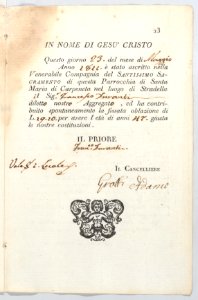 23
IN NOME DI GESU' CRISTO
Questo giorno 23. del mese di Maggio
Anno 1812 è stato ascritto nella
Venerabile Compagnia del SANTISSIMO SA-
CRAMENTO di questa Parrocchia di Santa
Maria di Carpeneta nel luogo di Stradello
il Sig. Francesco
diletto nostro Aggregato, ed ha contri-
buito spontaneamente la fissata oblazione di
L. 19.10. per essere l'età di anni 47. giusta
le nostre costituzioni.
IL PRIORE
IL CANCELLIERE
Grotti Adamo